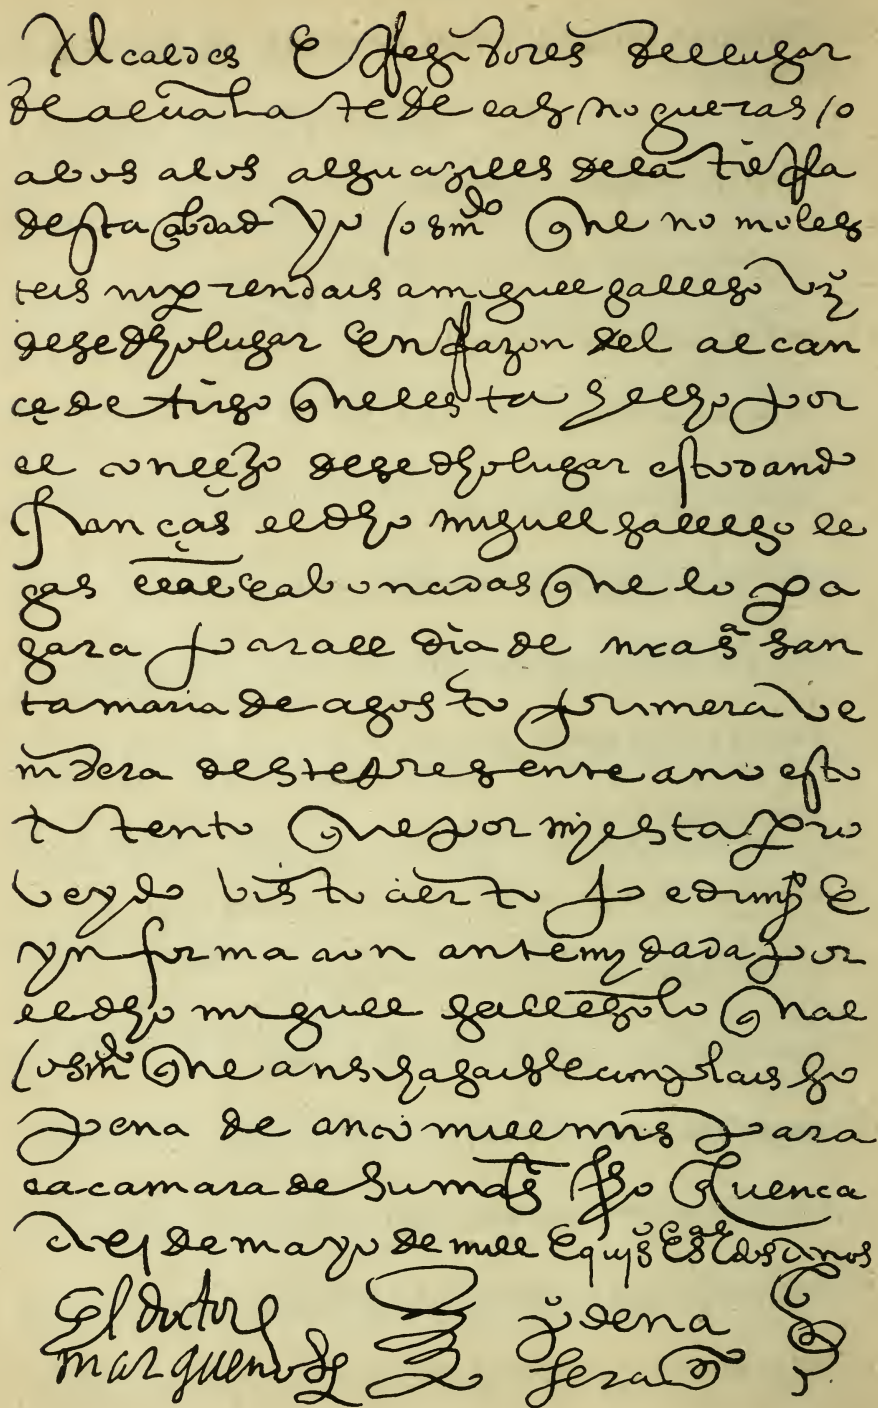 Alcaldes e Regidores del lugar
de alcuáhate de las nogueras so
a vos a los alguaziles de la tieRRa
desta cibdad yo vos mdo que no moles
teis ni prendais a miguel gallego vzº
dese dho lugar en Razon del alcan
ce de trigo que le esta hecho por
el concejo dese dho lugar esto dando
fianças el dho miguel gallego le
gas llas e abonadas que lo pa
gara para el dia de nra sª san
ta maria de agosto primera ve
nidera deste presente año esto
atento que por mi esta pro
veydo visto cierto pedimiº e
ynformacion ante my dada por
el dho miguel gallego lo qual
vos mdo que ansi hagais e cumplais so
pena de cinco mill mrs para
la camara de su magt fho Cuenca
a de mayo de mill e quis e años
El doctor ju de na
marquend gera